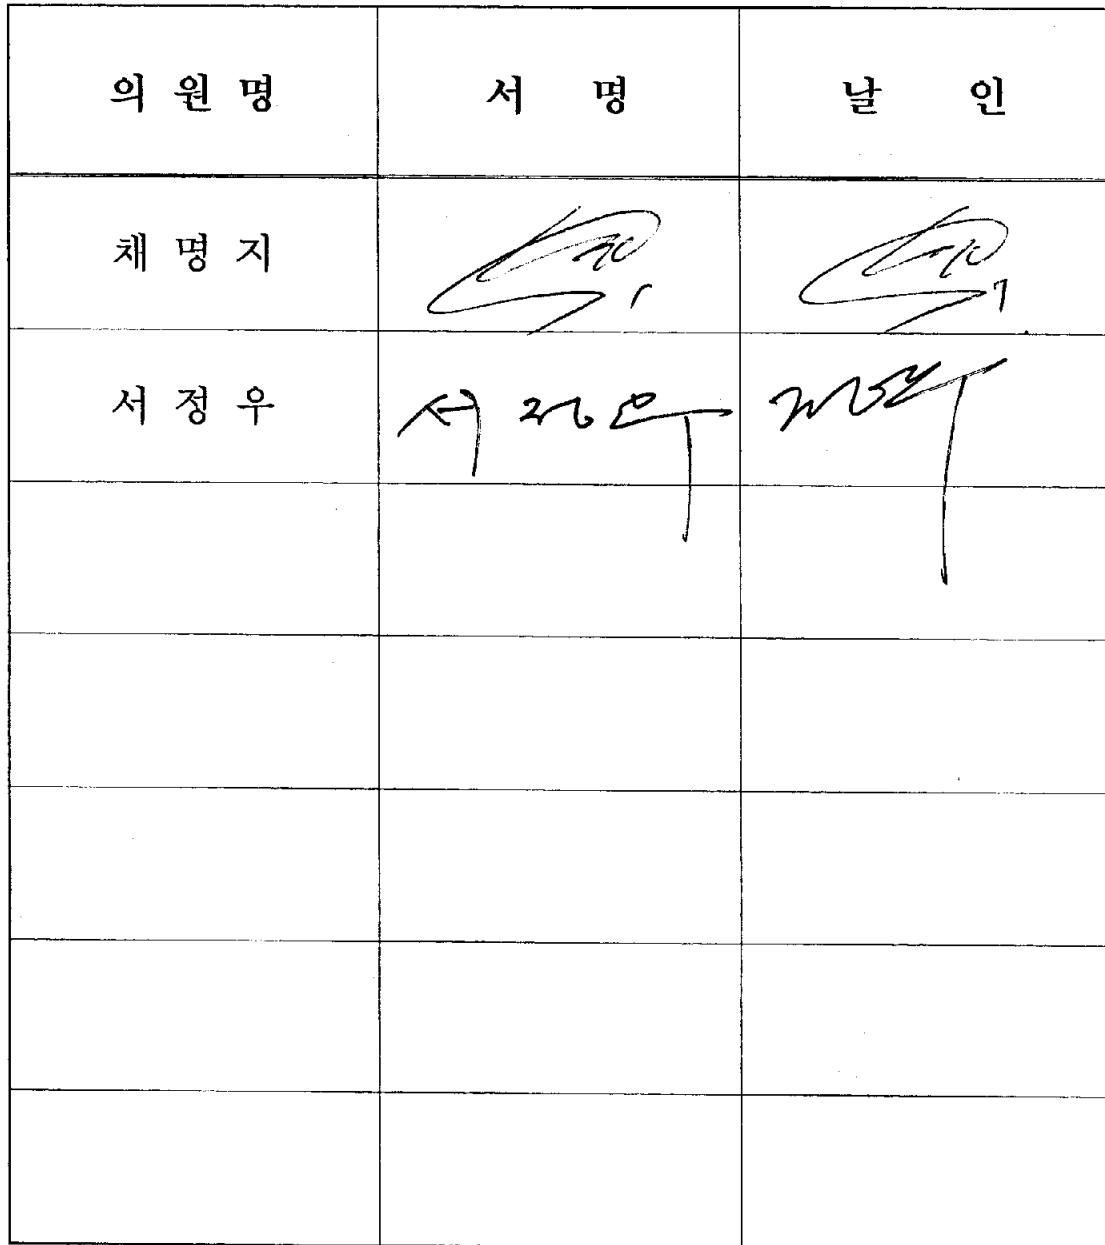 의원명 서명 날인
채명지
서정우 서정우 정우